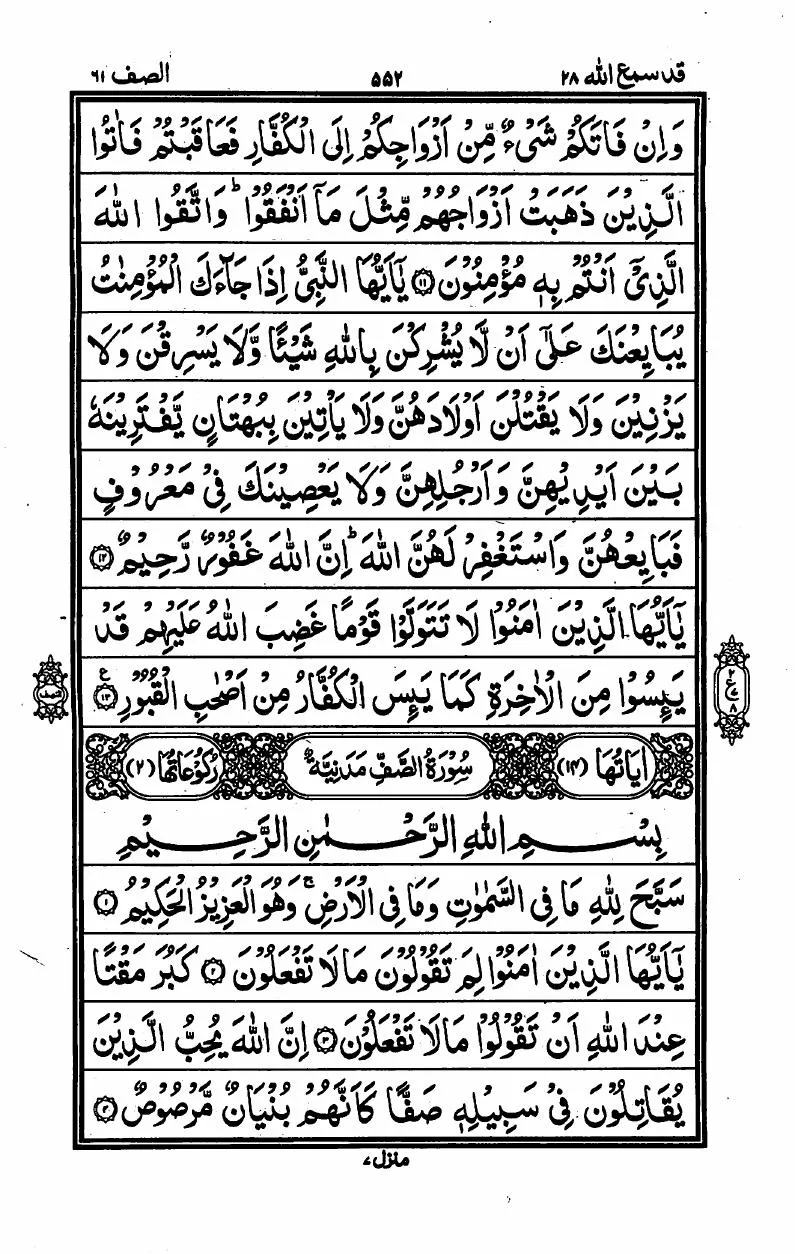 قد سمع الله ٢٨
٥٥٢
الصف ٦١
وَاِنْ فَاتَكُمْ شَیْءٌ مِّنْ اَزْوَاجِكُمْ اِلَى الْكُفَّارِ فَعَاقَبْتُمْ فَاٰتُوا
الَّذِیْنَ ذَهَبَتْ اَزْوَاجُهُمْ مِّثْلَ مَاۤ اَنْفَقُوْا ؕ وَاتَّقُوا اللّٰهَ
الَّذِیْۤ اَنْتُمْ بِهٖ مُؤْمِنُوْنَ ۝۱۱ یٰۤاَیُّهَا النَّبِیُّ اِذَا جَآءَكَ الْمُؤْمِنٰتُ
یُبَایِعْنَكَ عَلٰۤی اَنْ لَّا یُشْرِكْنَ بِاللّٰهِ شَیْـًٔا وَّلَا یَسْرِقْنَ وَلَا
یَزْنِیْنَ وَلَا یَقْتُلْنَ اَوْلَادَهُنَّ وَلَا یَاْتِیْنَ بِبُهْتَانٍ یَّفْتَرِیْنَهٗ
بَیْنَ اَیْدِیْهِنَّ وَاَرْجُلِهِنَّ وَلَا یَعْصِیْنَكَ فِیْ مَعْرُوْفٍ
فَبَایِعْهُنَّ وَاسْتَغْفِرْ لَهُنَّ اللّٰهَ ؕ اِنَّ اللّٰهَ غَفُوْرٌ رَّحِیْمٌ ۝۱۲
یٰۤاَیُّهَا الَّذِیْنَ اٰمَنُوْا لَا تَتَوَلَّوْا قَوْمًا غَضِبَ اللّٰهُ عَلَیْهِمْ قَدْ
یَىِٕسُوْا مِنَ الْاٰخِرَةِ كَمَا یَىِٕسَ الْكُفَّارُ مِنْ اَصْحٰبِ الْقُبُوْرِ ۝۱۳ ع
٢
ع
٧
٨
نصف
اٰیَاتُهَا (۱۴)
سُوْرَةُ الصَّفِّ مَدَنِیَّةٌ
رُكُوْعَاتُهَا (۲)
بِسْمِ اللّٰهِ الرَّحْمٰنِ الرَّحِیْمِ
سَبَّحَ لِلّٰهِ مَا فِی السَّمٰوٰتِ وَمَا فِی الْاَرْضِ ۚ وَهُوَ الْعَزِیْزُ الْحَكِیْمُ ۝۱
یٰۤاَیُّهَا الَّذِیْنَ اٰمَنُوْا لِمَ تَقُوْلُوْنَ مَا لَا تَفْعَلُوْنَ ۝۲ كَبُرَ مَقْتًا
عِنْدَ اللّٰهِ اَنْ تَقُوْلُوْا مَا لَا تَفْعَلُوْنَ ۝۳ اِنَّ اللّٰهَ یُحِبُّ الَّذِیْنَ
یُقَاتِلُوْنَ فِیْ سَبِیْلِهٖ صَفًّا كَاَنَّهُمْ بُنْیَانٌ مَّرْصُوْصٌ ۝۴
منزل ۷